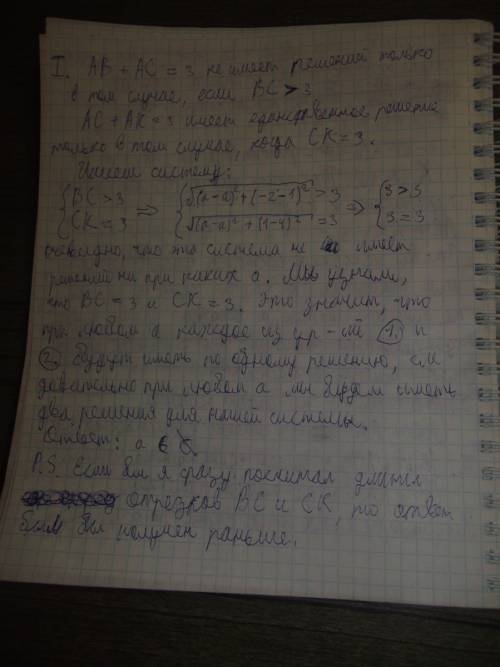 I. AB + AC = 3 не имеет решений только
в том случае, если BC > 3
AC + AK = 3 имеет единственное решение
только в том случае, когда CK = 3.
Имеем систему:
{BC > 3 CK = 3 ⇒ {√((a-a)²+(-2-1)²) > 3 √((a-a)²+(1-4)²) = 3 ⇒ {3 > 3 3 = 3
очевидно, что эта система не имеет
решений ни при каких a. Мы узнали,
что BC = 3 и CK = 3. Это значит, что
при любом a каждое из ур-ий 1. и
2. будут иметь по одному решению, сле
довательно при любом a мы будем иметь
два решения для нашей системы.
Ответ: a ∈
P.S. Если бы я сразу посчитал длины
отрезков BC и CK, то ответ
был бы получен раньше.